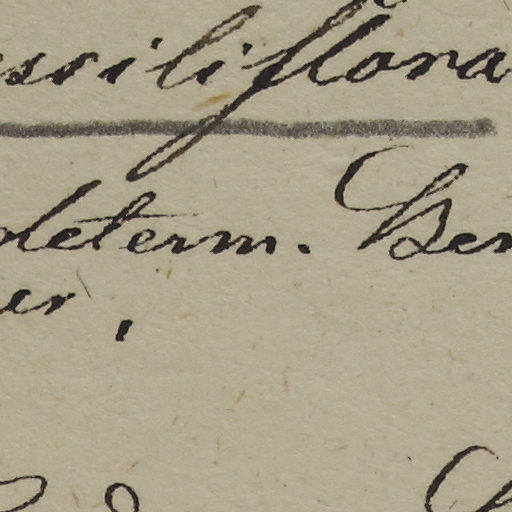 essiliflora
determ. Ben
er,